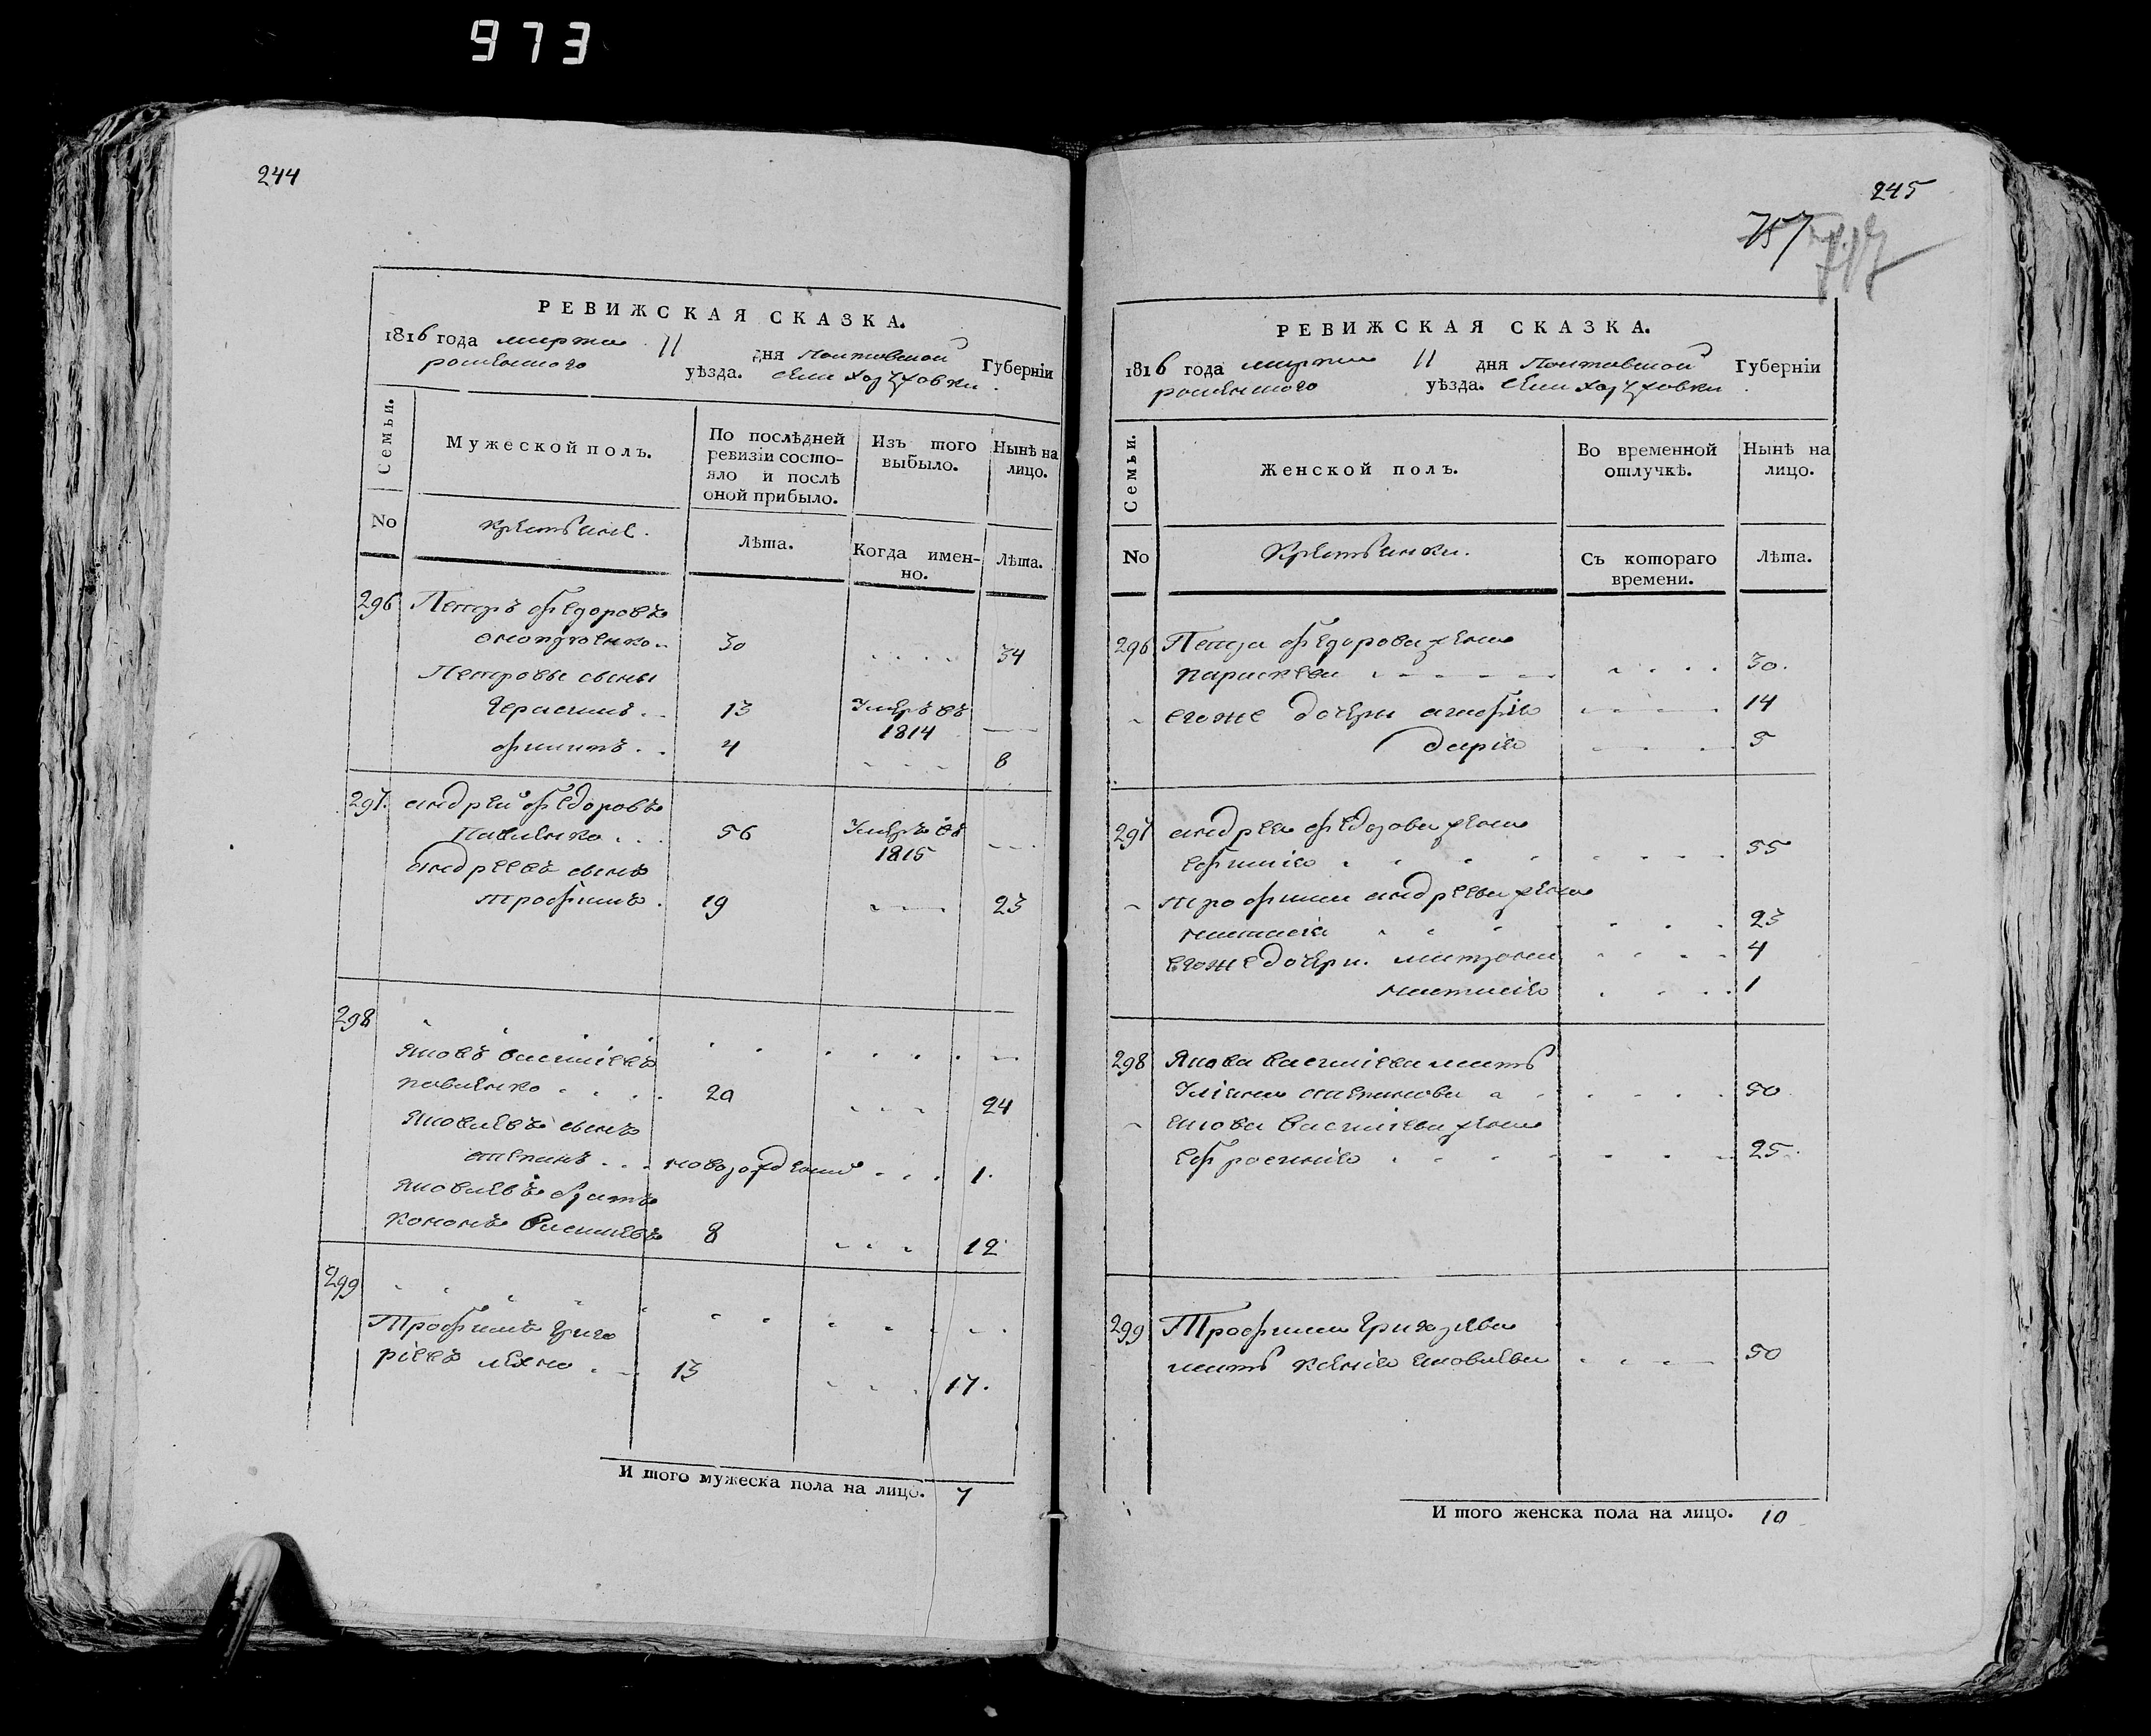 973
244
РЕВИЖСКАЯ СКАЗКА.
1816 года марта 11 дня Полтавской Губернїи
роменского уѣзда. села
Семьи.
Мужеской полъ.
По послѣдней ревизїи состояло и послѣ оной прибыло.
Изъ того выбыло.
Нынѣ на лицо.
No
крестьяне.
Лѣта.
Когда именно.
Лѣта.
296 Петръ федоровъ
30 .... 34
Петровы сыны
Герасимъ .. 13 Умеръ въ 1814 —
филипъ .. 4 ... 8
297. андрей федоровъ
павленко ... 56 Умеръ въ 1815 ...
андреевъ сынъ
трофимъ . 19 — 23
298
Яковъ василіевъ
павленко .... 20 .... 24
Яковлевъ сынъ
степанъ ... новорожденый ... 1.
Яковлевъ братъ
кононъ василіевъ 8 ... 12
299
Трофимъ Григо
ріевъ лехно .. 13 ... 17.
И того мужеска пола на лицо. 7
245
757
717
РЕВИЖСКАЯ СКАЗКА.
1816 года марта 11 дня Полтавской Губернїи
роменского уѣзда. села
Семьи.
Женской полъ.
Во временной отлучкѣ.
Нынѣ на лицо.
No
Крестьянки.
Съ котораго времени.
Лѣта.
296 Петра федорова жена
параскева .... 30.
егоже дочери агафія 14
дарія 5
297 андрея федорова жена
евфимія .... 55
трофима андреева жена
наталія .... 23
егоже дочери. матрона .... 4
настасія .... 1
298 Якова василіева мать
Уліяна степанова .... 50
Якова василіева жена
евфросинія .... 25.
299 Трофима Григорьева
мать ксенія яковлева ... 50
И того женска пола на лицо. 10